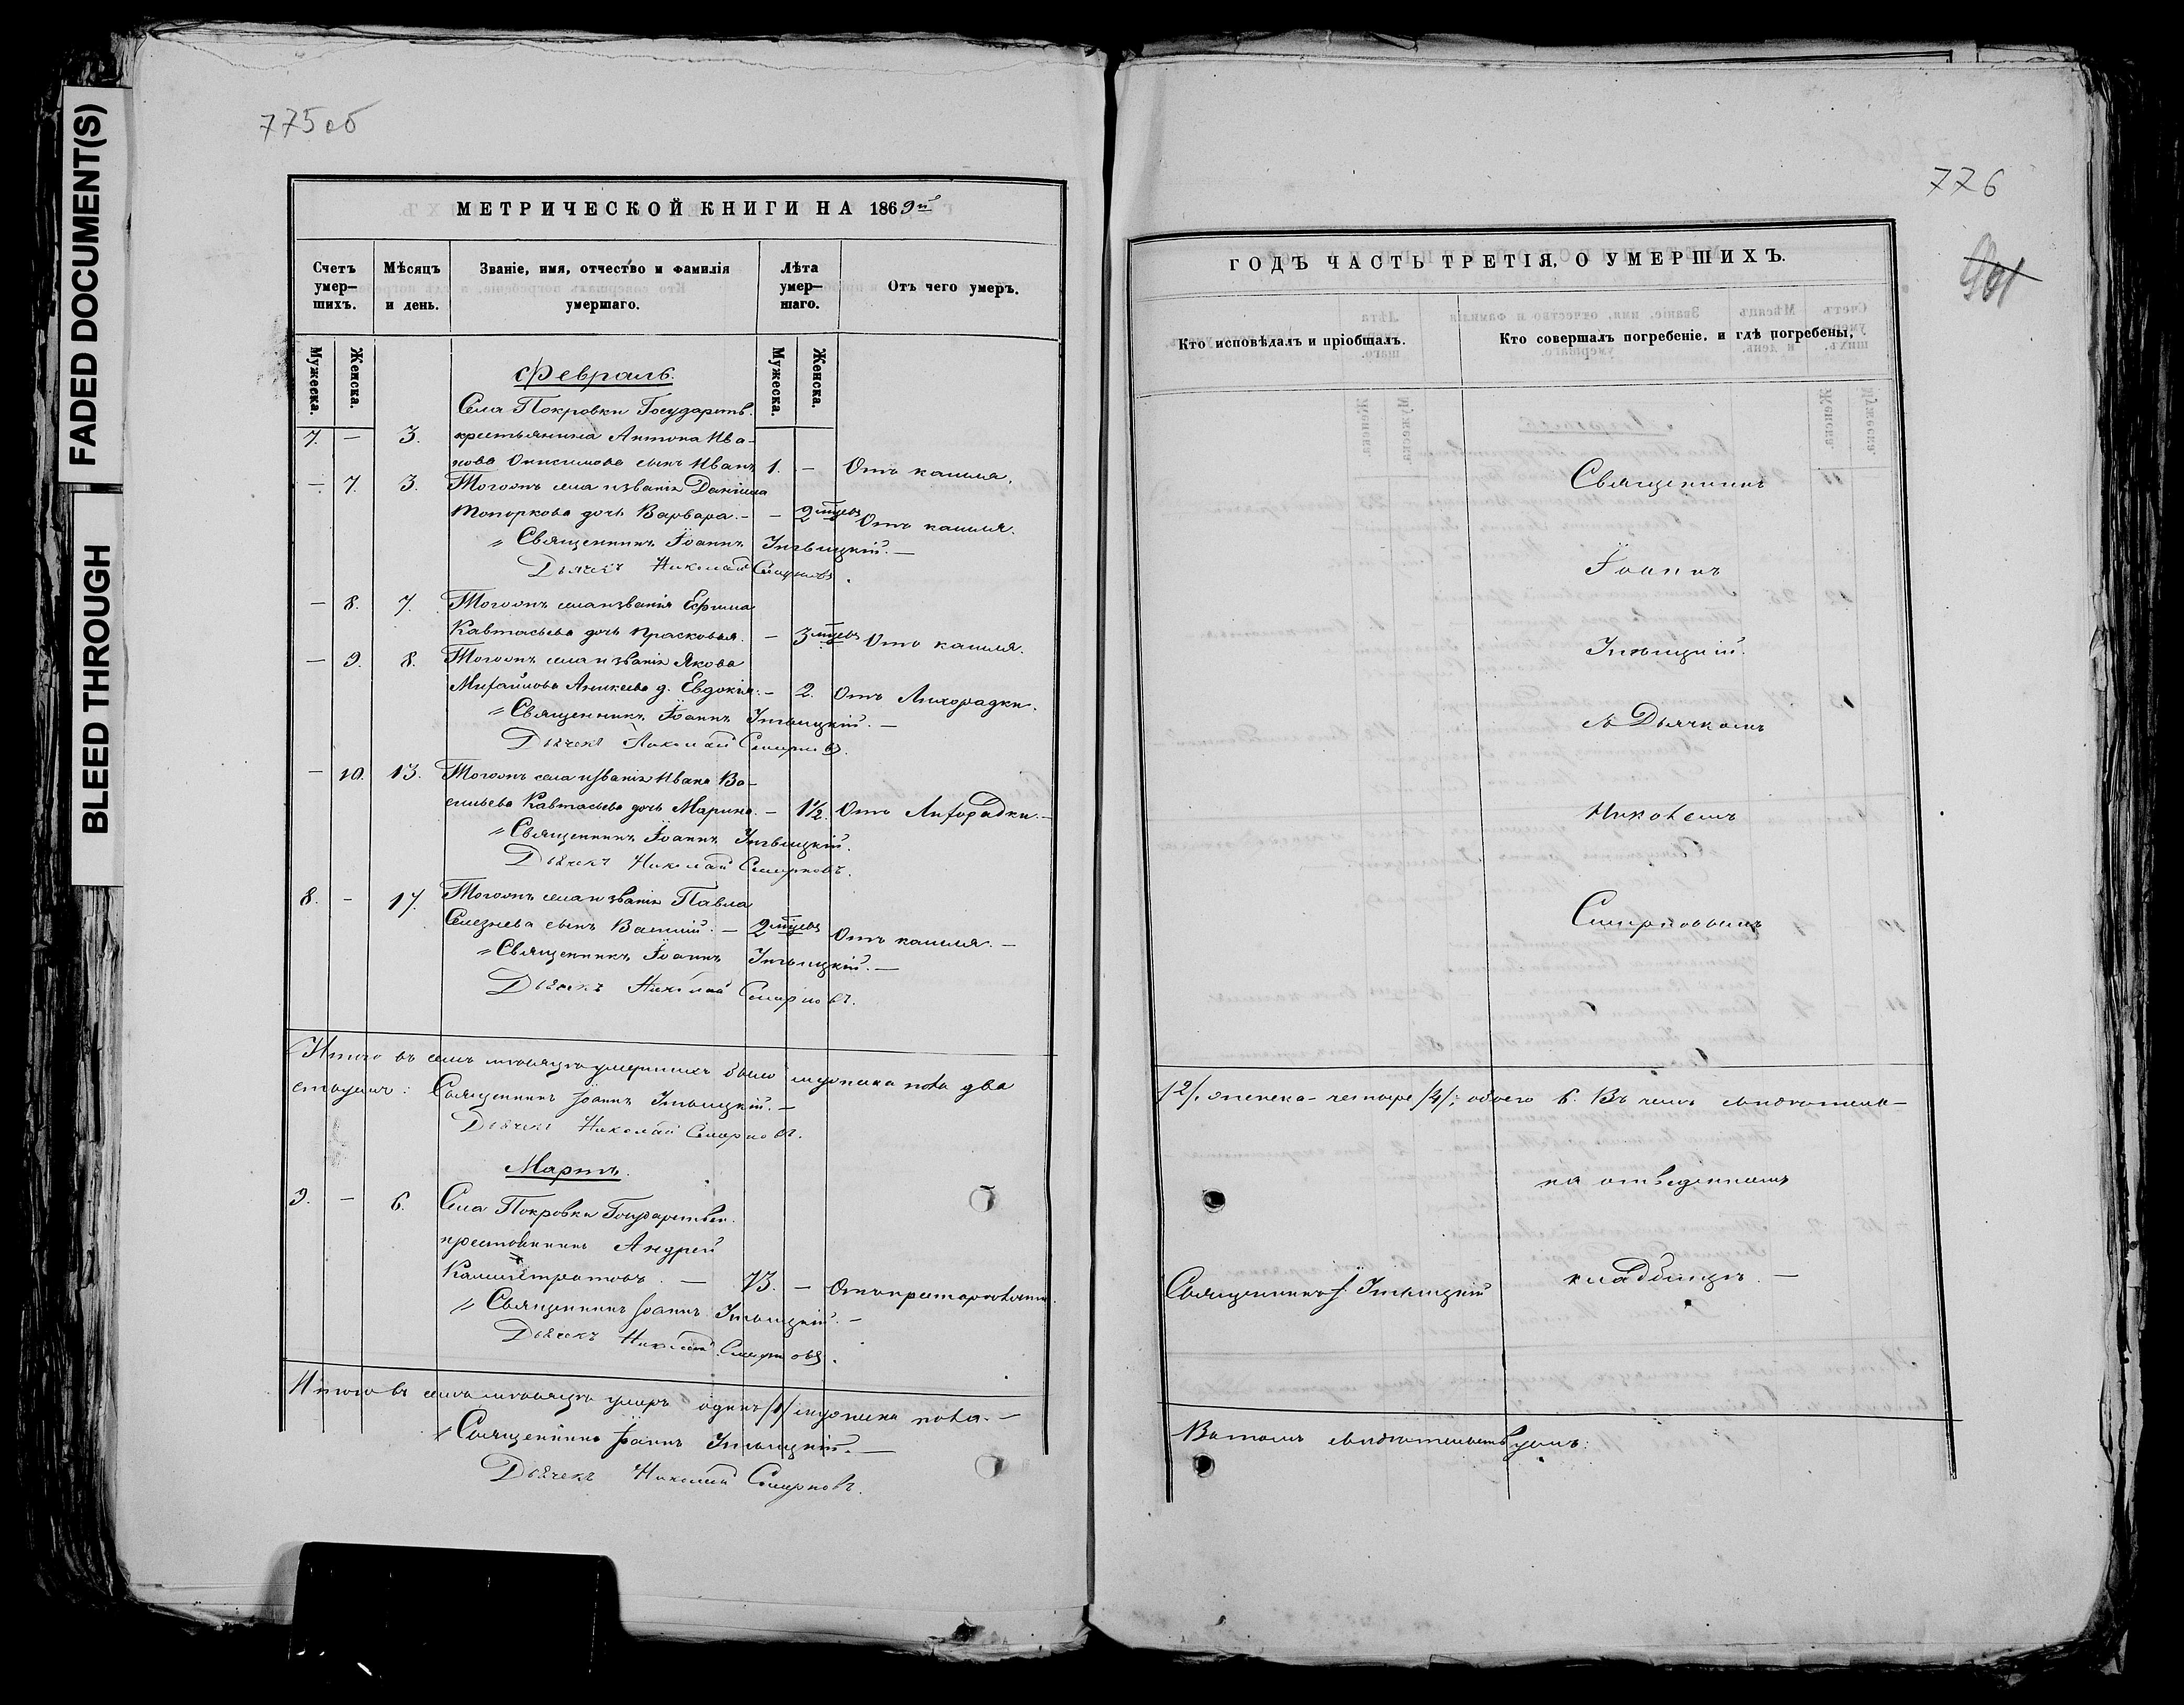 FADED DOCUMENT(S)
BLEED THROUGH
775об
МЕТРИЧЕСКОЙ КНИГИ НА 1869й
Счетъ умер-шихъ.
Мѣсяцъ и день.
Званіе, имя, отчество и фамилія умершаго.
Лѣта умер-шаго.
Отъ чего умеръ.
Мужеска.
Женска.
Мужеска.
Женска.
Февраль.
Села Покровки Государств.
7. — 3. крестьянина Антона Ива-
нова Онисимова сынъ Иванъ 1. — Отъ кашля.
— 7. 3. Тогожъ села и званія Даніила
Топоркова дочь Варвара. — — 2 мцевъ Отъ кашля.
Священникъ Іоаннъ
Дьячекъ Николай Смирновъ.
— 8. 7. Тогожъ села и званія Ефима
Кавтасьева дочь Прасковья. — 3 мцевъ Отъ кашля.
— 9. 8. Тогожъ села и званія Якова
Михайлова Аникеева д. Евдокія. — 2. Отъ Лихорадки.
Священникъ Іоаннъ
Дьячекъ Николай Смирновъ.
— 10. 13. Тогожъ села и званія Ивана Ва-
сильева Кавтасьева дочь Марина. — 1½. Отъ Лихорадки. —
Священникъ Іоаннъ
Дьячекъ Николай Смирновъ.
8. — 17. Тогожъ села и званія Павла
Селезнева сынъ Василій. — 2 мцевъ Отъ кашля. —
Священникъ Іоаннъ
Дьячекъ Николай Смирновъ.
Итого въ семъ мѣсяцѣ умершихъ было мужеска пола два
Священникъ Іоаннъ
Дьячекъ Николай Смирновъ.
Мартъ.
Села Покровки Государствен.
9. — 6. крестьянинъ Андрей
73. —
Священникъ Іоаннъ
Дьячекъ Николай Смирновъ.
Итого въ семъ мѣсяцѣ умеръ одинъ /1/ мужеска пола. —
Священникъ Іоаннъ
Дьячекъ Николай Смирновъ.
776
901
ГОДЪ ЧАСТЬ ТРЕТІЯ, О УМЕРШИХЪ.
Кто исповѣдалъ и пріобщалъ.
Кто совершалъ погребеніе, и гдѣ погребены,
Священникъ
Іоаннъ
съ Дьячкомъ
Николаемъ
Смирновымъ
/2/, женска - четыре /4/; обоего 6. Въ чемъ свидѣтель-
на отведенномъ
кладбищѣ. —
Священникъ І.
Въ томъ свидѣтельствуемъ: